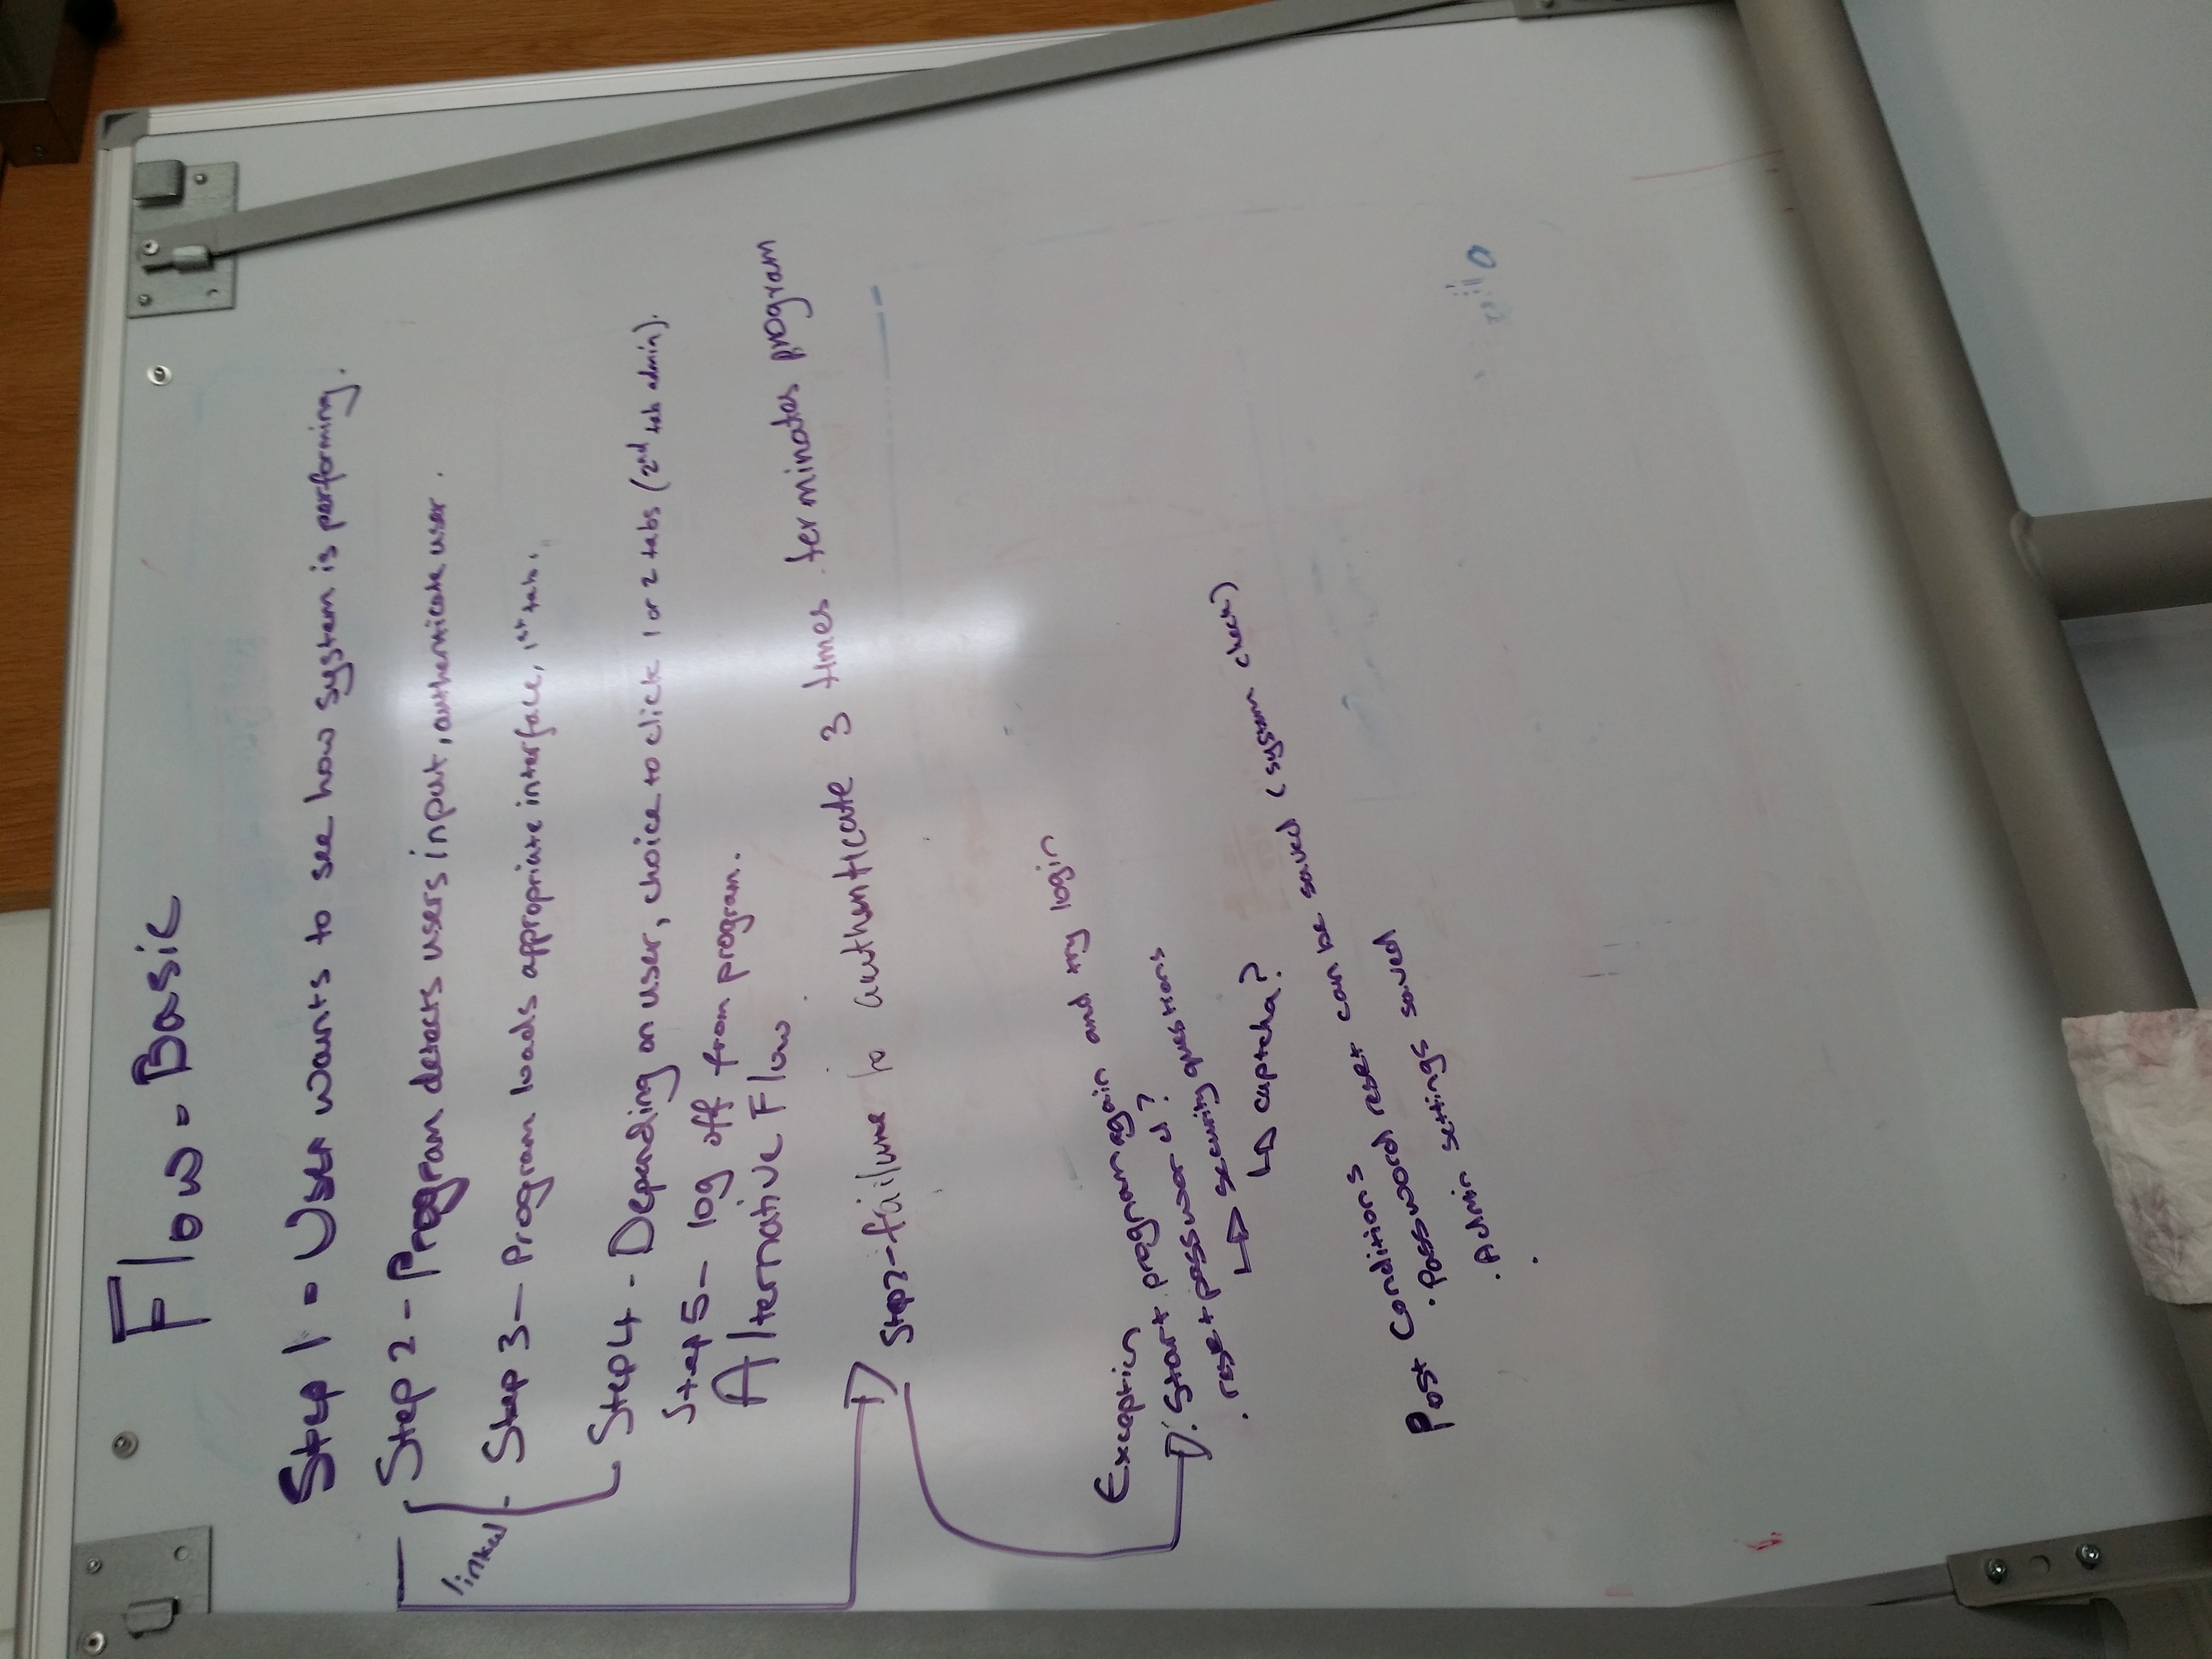 Flow - Basic
Step 1 - User wants to see how system is performing.
Step 2 - Program detects users input, authenticate user.
linked - Step 3 - Program loads appropriate interface, 1st tab.
Step 4 - Depending on user, choice to click 1 or 2 tabs (2nd tab admin).
Step 5 - log off from program.
Alternative Flow
Step2 - failure to authenticate 3 times terminates program
Exception
. Start program again and try login
. reset password?
↳ Security questions
↳ captcha?
Post Conditions
. Password reset can be saved (system check)
. Admin settings saved
.